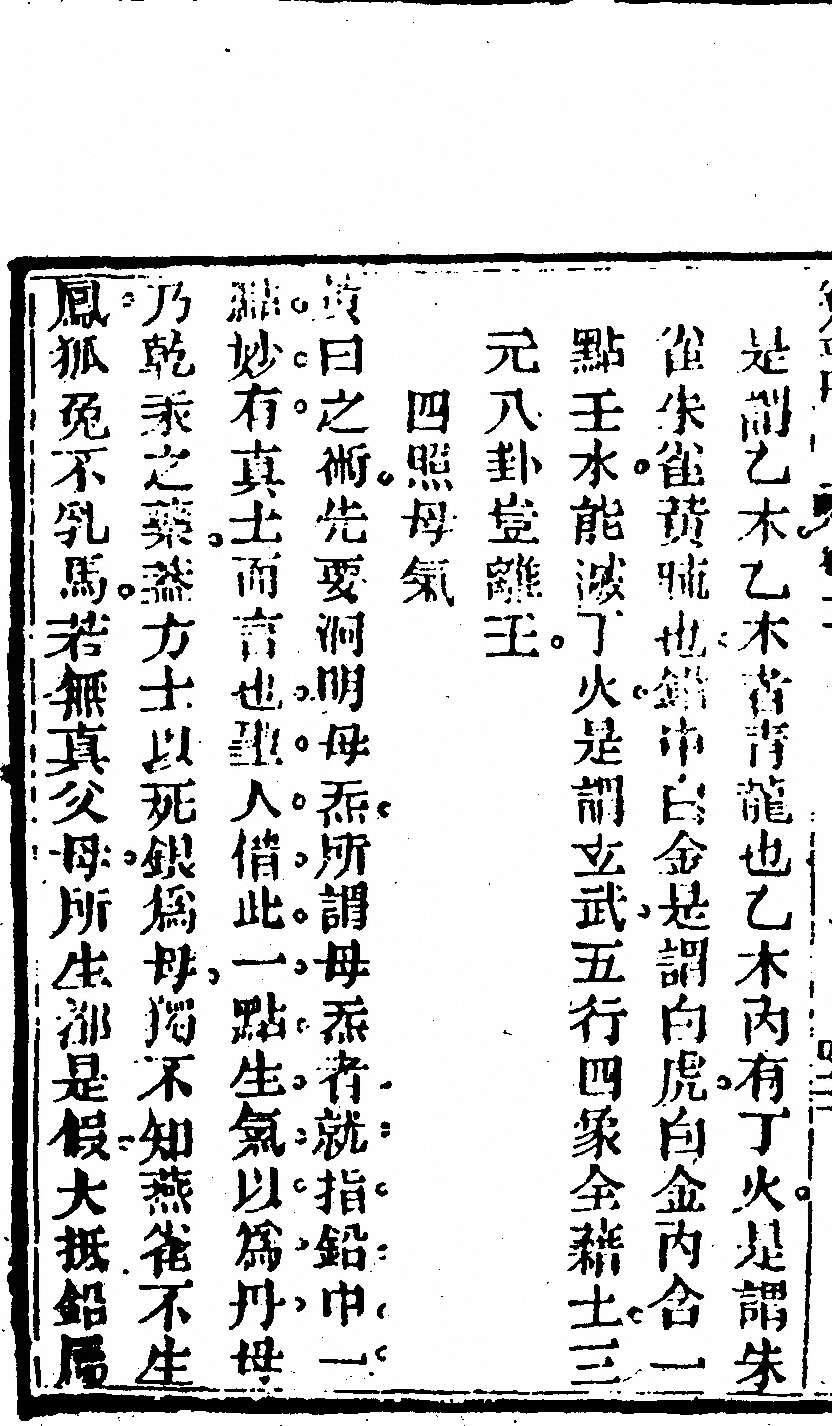 是謂乙木乙木者青龍也乙木内有丁火是謂朱
雀朱雀黄㖔也鉛中白金是謂白虎白金内含一
點壬水能㓕丁火是謂玄武五行四象全藉土三
元八卦豈離壬
四照母氣
黄曰之術先要洞明母炁所謂母炁者就指鉛中一
點妙有真土而言也聖人借此一點生氣以爲丹母
乃乾汞之藥葢方士以死銀爲母獨不知燕雀不生
鳳狐兎不乳馬若無真父母所生都是假大抵鉛屬